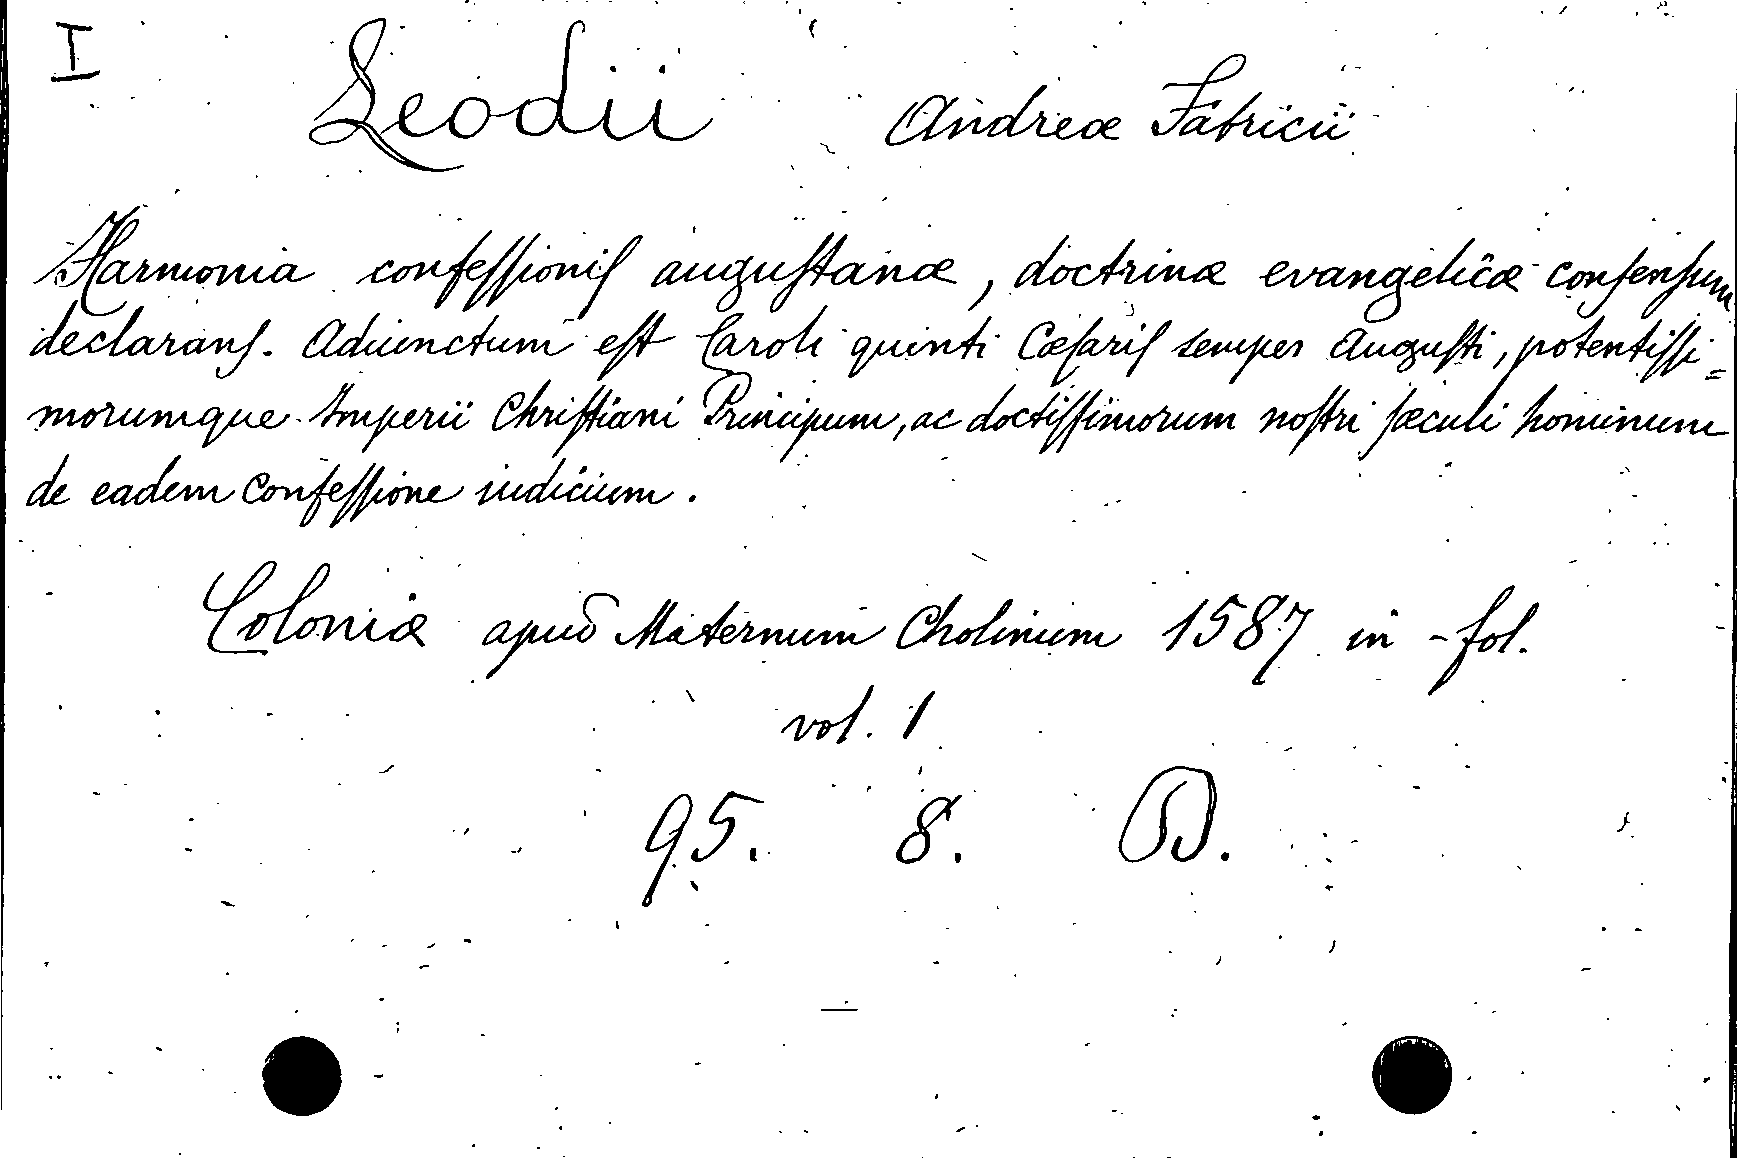 I
Leodii Andreæ Fabricii
Harmonia confeſſioniſ auguſtanæ, doctrinæ evangelicæ conſenſum
declaranſ. Adiunctum eſt Caroli quinti Cæſariſ semper Auguſti, potentiſſi=
morumque Imperii Chriſtiani Principum, ac doctiſſimorum noſtri ſæculi hominum
de eadem Confeſſione iudicium.
Coloniæ apud Maternum Cholinum 1587 in-fol.
vol. 1
95. 8. B.